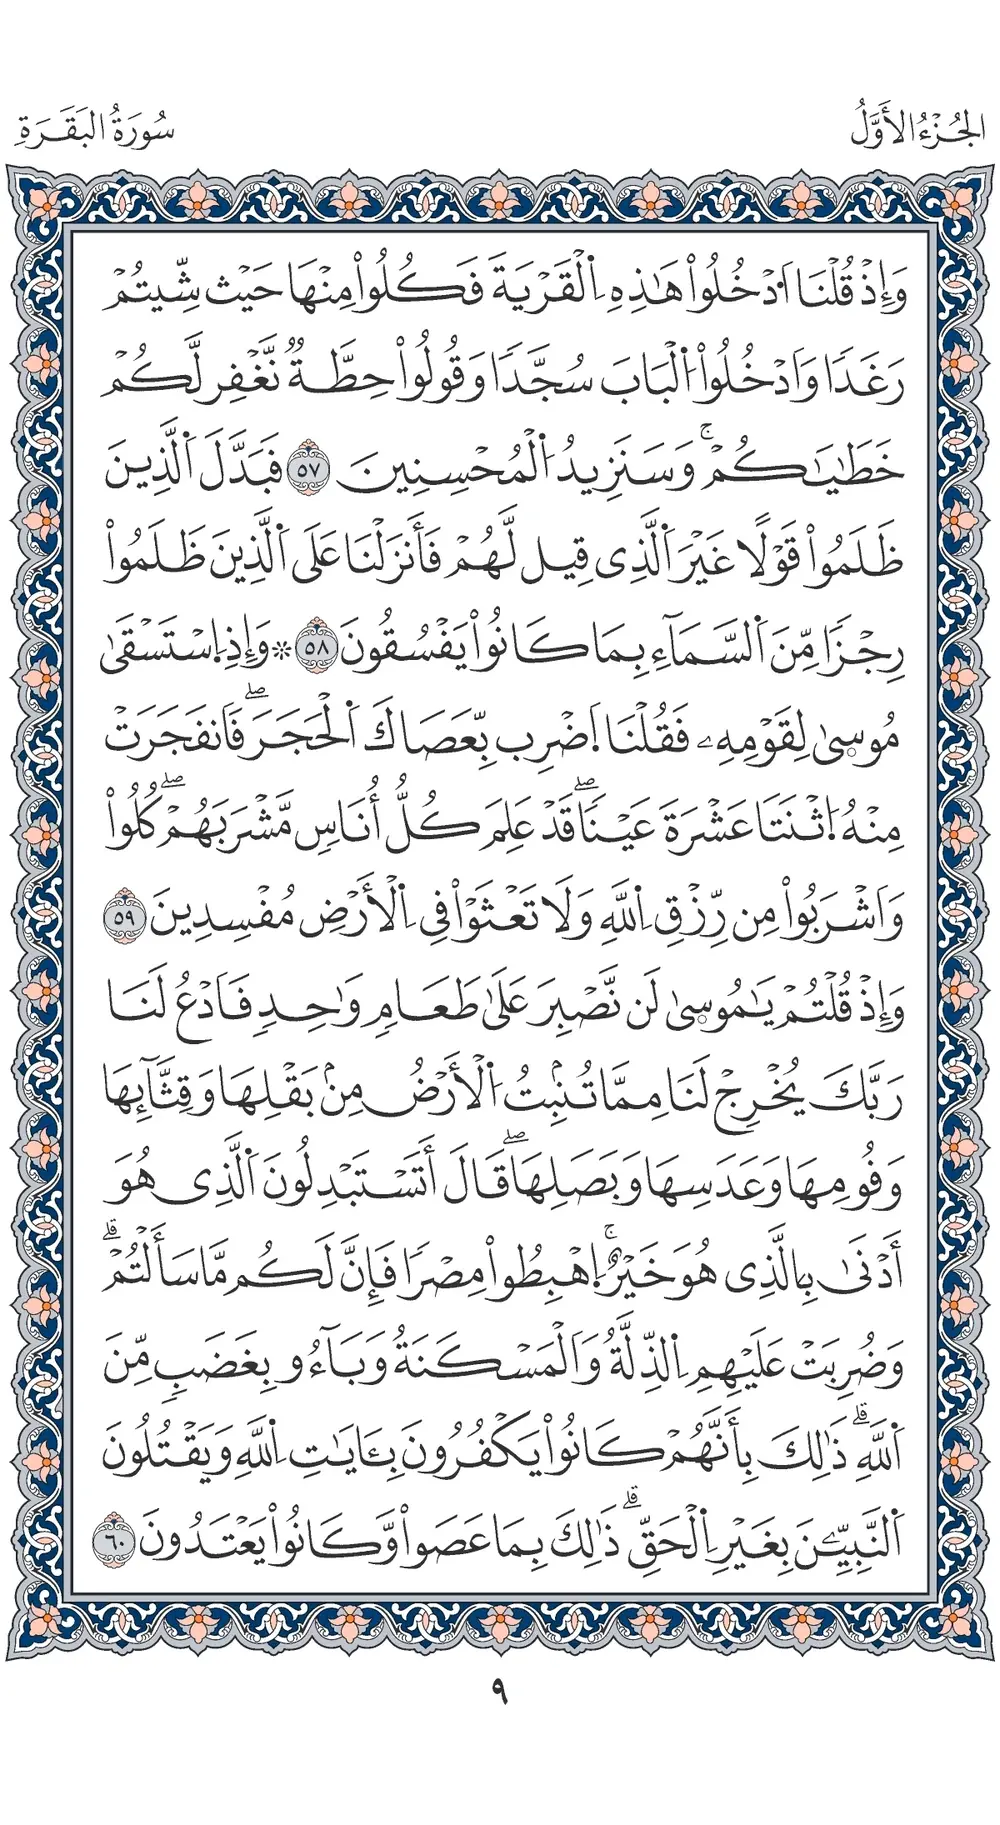 الجُزْءُ الأَوَّلُ
سُورَةُ البَقَرَةِ
وَإِذْ قُلْنَا اَدْخُلُواْ هَٰذِهِ اِلْقَرْيَةَ فَكُلُواْ مِنْهَا حَيْث شِّيتُمْ
رَغَدًا وَادْخُلُواْ اُلْبَابَ سُجَّدًا وَقُولُواْ حِطَّةٌ نَّغْفِر لَّكُمْ
خَطَٰيَٰكُمْۚ وَسَنَزِيدُ اُلْمُحْسِنِينَ ٥٧ فَبَدَّلَ اَلَّذِينَ
ظَلَمُواْ قَوْلًا غَيْرَ اَلَّذِى قِيل لَّهُمْ فَأَنزَلْنَا عَلَى اَلَّذِينَ ظَلَمُواْ
رِجْزًا مِّنَ اَلسَّمَآءِ بِمَا كَانُواْ يَفْسُقُونَ ٥٨ ۞ وَإِذِ اِسْتَسْقَىٰ
مُوسىٰ لِقَوْمِهِۦ فَقُلْنَا اَضْرِب بِّعَصَاكَ اَلْحَجَرَۖ فَانفَجَرَتْ
مِنْهُ اُثْنَتَا عَشْرَةَ عَيْنًاۖ قَدْ عَلِمَ كُلُّ أُنَاسٍ مَّشْرَبَهُمْۖ كُلُواْ
وَاشْرَبُواْ مِن رِّزْقِ اِللَّهِ وَلَا تَعْثَوْاْ فِى اِلْأَرْضِ مُفْسِدِينَ ٥٩
وَإِذْ قُلْتُمْ يَٰمُوسىٰ لَن نَّصْبِرَ عَلَىٰ طَعَامٍ وَٰحِدٍ فَادْعُ لَنَا
رَبَّكَ يُخْرِجْ لَنَا مِمَّا تُنۢبِتُ اُلْأَرْضُ مِنۢ بَقْلِهَا وَقِثَّآئِهَا
وَفُومِهَا وَعَدَسِهَا وَبَصَلِهَاۖ قَالَ أَتَسْتَبْدِلُونَ اَلَّذِى هُوَ
أَدْنىٰ بِالَّذِى هُوَ خَيْرٌۚ اِهْبِطُواْ مِصْرًا فَإِنَّ لَكُم مَّا سَأَلْتُمْۗ
وَضُرِبَتْ عَلَيْهِمِ اِلذِّلَّةُ وَالْمَسْكَنَةُ وَبَآءُو بِغَضَبٍ مِّنَ
اَللَّهِۗ ذَٰلِكَ بِأَنَّهُمْ كَانُواْ يَكْفُرُونَ بِـَٔايَٰتِ اِللَّهِ وَيَقْتُلُونَ
اَلنَّبِيِّـۧنَ بِغَيْرِ اِلْحَقِّۗ ذَٰلِكَ بِمَا عَصَواْ وَّكَانُواْ يَعْتَدُونَ ٦٠
٩